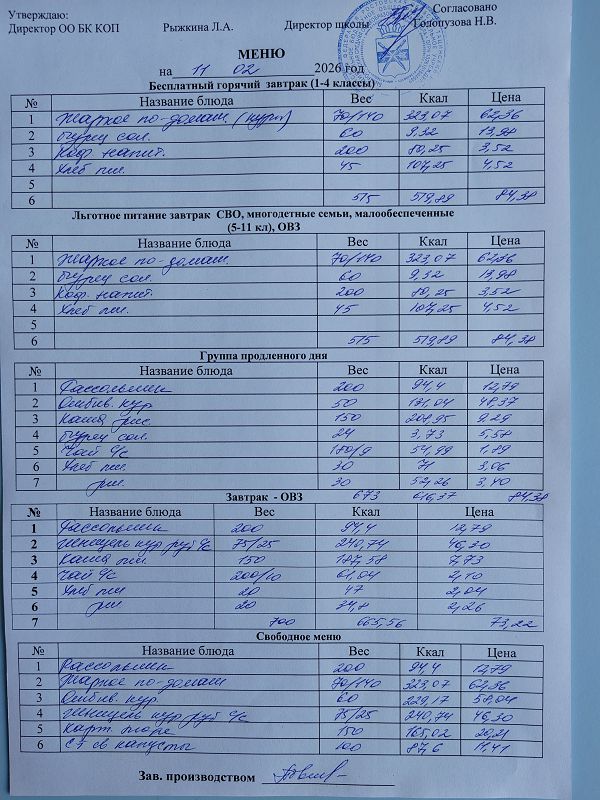 Утверждаю: Согласовано
Директор ОО БК КОП Рыжкина Л.А. Директор школы Голопузова Н.В.
МЕНЮ
на 11 02 2026 год
Бесплатный горячий завтрак (1-4 классы)
№ Название блюда Вес Ккал Цена
1 Жаркое по-домаш. (куры) 70/140 323,07 62,36
2 Огурец сол. 60 9,32 13,98
3 Коф. напит. 200 80,25 3,52
4 Хлеб пш. 45 107,25 4,52
5
6 515 519,89 84,38
Льготное питание завтрак СВО, многодетные семьи, малообеспеченные
(5-11 кл), ОВЗ
№ Название блюда Вес Ккал Цена
1 Жаркое по-домаш. 70/140 323,07 62,36
2 Огурец сол. 60 9,32 13,98
3 Коф. напит. 200 80,25 3,52
4 Хлеб пш. 45 107,25 4,52
5
6 515 519,89 84,38
Группа продленного дня
№ Название блюда Вес Ккал Цена
1 Рассольник 200 94,4 12,79
2 Отбивн. кур 50 191,04 48,37
3 Каша рис. 150 208,95 9,29
4 Огурец сол. 24 3,73 5,58
5 Чай с/с 180/9 54,99 1,89
6 Хлеб пш. 30 71 3,06
7 рж. 30 52,26 3,40
Завтрак - ОВЗ 673 616,37 84,38
№ Название блюда Вес Ккал Цена
1 Рассольник 200 94,4 12,79
2 Шницель кур руб с/с 75/25 240,74 46,30
3 Каша пш. 150 187,58 7,73
4 Чай с/с 200/10 61,04 2,10
5 Хлеб пш 20 47 2,04
6 рж 20 34,8 2,26
7 700 665,56 73,22
Свободное меню
№ Название блюда Вес Ккал Цена
1 Рассольник 200 94,4 12,79
2 Жаркое по-домаш 70/140 323,07 62,36
3 Отбивн. кур. 60 229,17 58,04
4 Шницель кур руб с/с 75/25 240,74 46,30
5 Карт пюре 150 165,02 20,21
6 С-т св капусты 100 87,6 11,41
Зав. производством